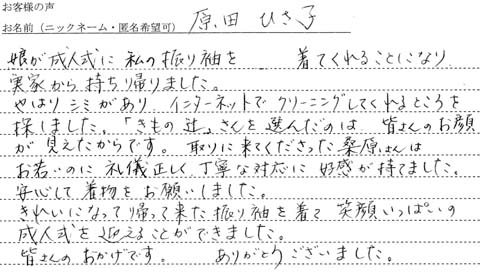 お客様の声
お名前（ニックネーム・匿名希望可） 原田 ひさ子
娘が成人式に 私の振り袖を 着てくれることになり
実家から持ち帰りました。
やはりシミがあり、インターネットで クリーニングしてくれるところを
探しました。「きもの辻」さんを選んだのは 皆さんのお顔
が 見えたからです。 取りに来てくださった 桑原さんは
お若いのに 礼儀正しく 丁寧な対応に 好感が持てました。
安心して 着物を お願いしました。
きれいになって 帰って来た 振り袖を着て 笑顔いっぱいの
成人式を 迎えることができました。
皆さんの おかげです。 ありがとうございました。